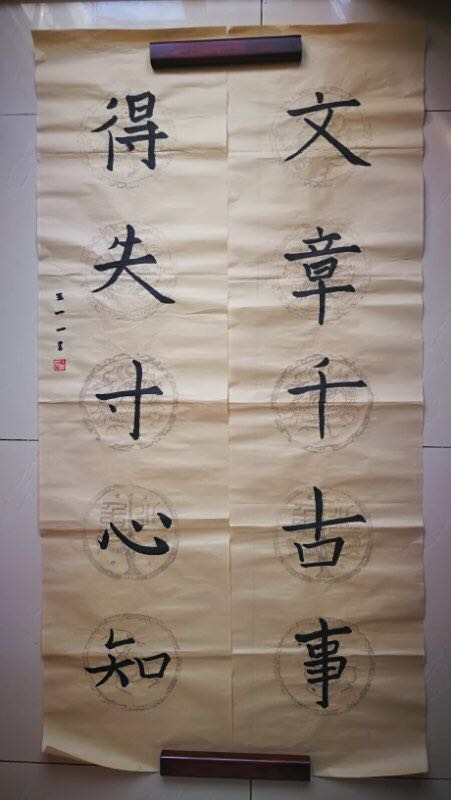 文章千古事
得失寸心知
王一一書